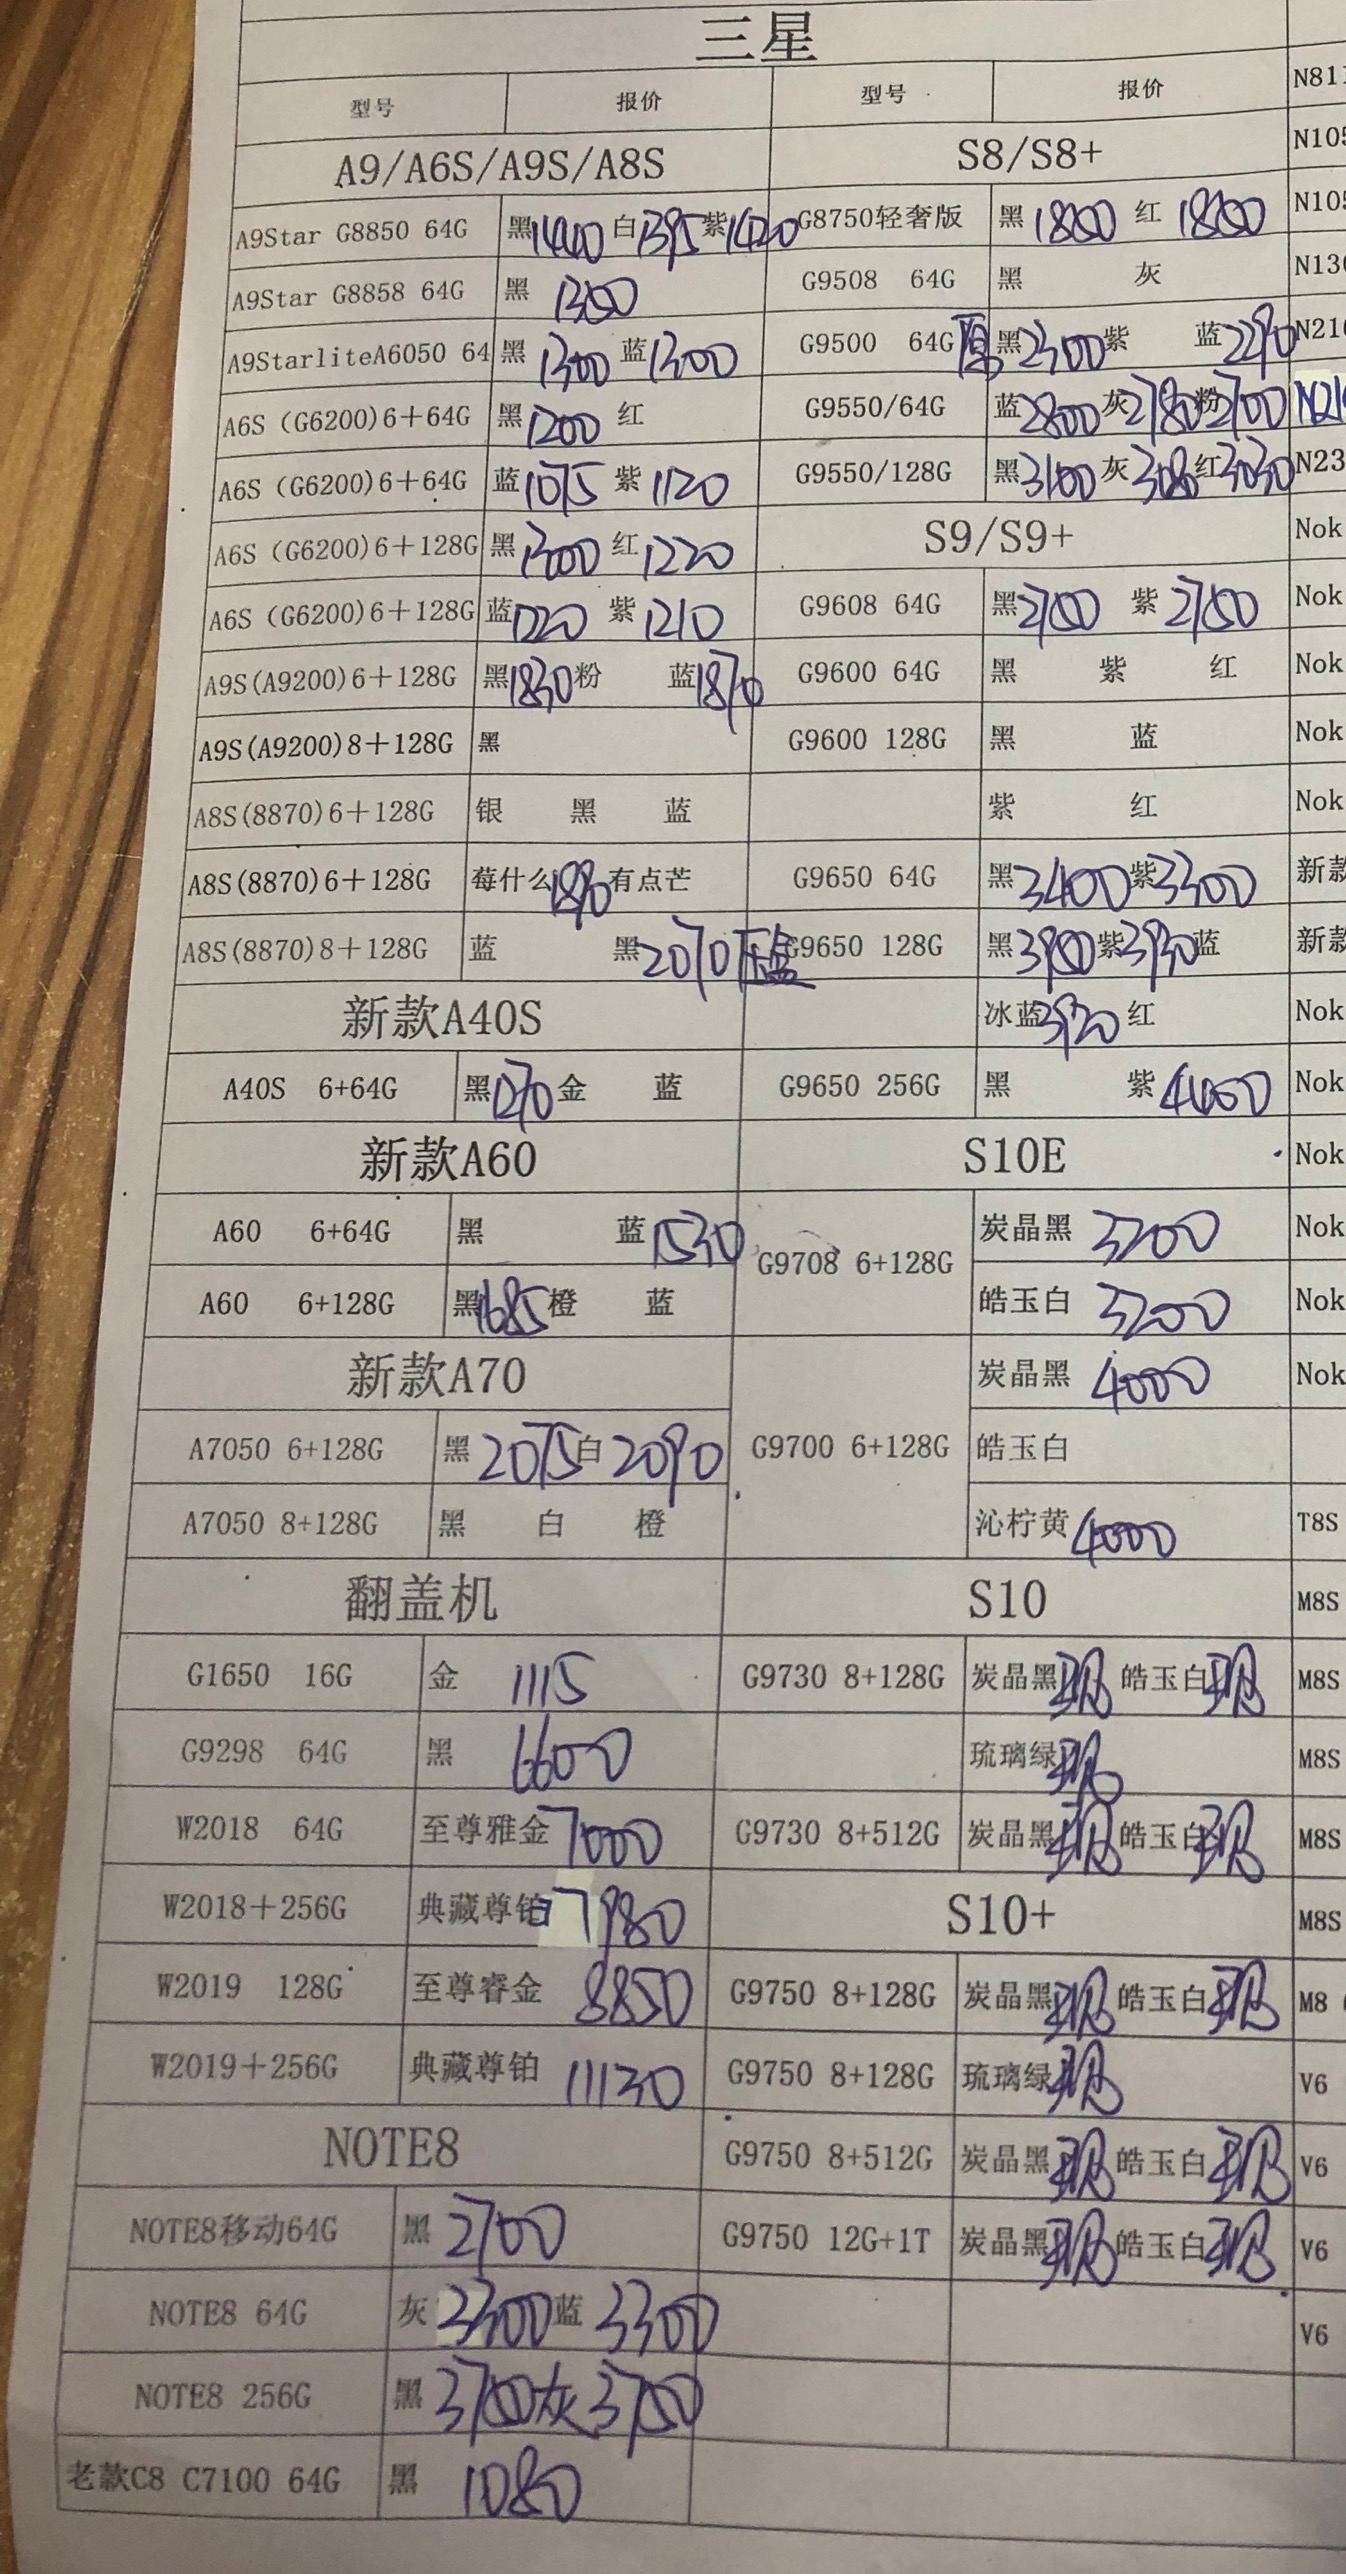 三星
型号 报价 型号 报价
A9/A6S/A9S/A8S S8/S8+
A9Star G8850 64G 黑1440 白1395 紫1420 G8750轻奢版 黑1800 红1800
A9Star G8858 64G 黑 1300 G9508 64G 黑 灰
A9StarliteA6050 64 黑1300 蓝1300 G9500 64G 黑2300 紫 蓝2290
A6S (G6200)6+64G 黑1200 红 G9550/64G 蓝2800 灰2780 粉2700
A6S (G6200)6+64G 蓝1075 紫1120 G9550/128G 黑3100 灰3080 红3030
A6S (G6200)6+128G 黑1300 红1220 S9/S9+
A6S (G6200)6+128G 蓝1220 紫1210 G9608 64G 黑2750 紫2750
A9S(A9200)6+128G 黑1830 粉 蓝1870 G9600 64G 黑 紫 红
A9S(A9200)8+128G 黑 G9600 128G 黑 蓝
A8S(8870)6+128G 银 黑 蓝 紫 红
A8S(8870)6+128G 莓什么1890 有点芒 G9650 64G 黑3400 紫3300
A8S(8870)8+128G 蓝 黑2070 G9650 128G 黑3900 紫3930 蓝
新款A40S 冰蓝3920 红
A40S 6+64G 黑1270 金 蓝 G9650 256G 黑 紫4400
新款A60 S10E
A60 6+64G 黑 蓝1530 G9708 6+128G 炭晶黑 3200
A60 6+128G 黑1685 橙 蓝 皓玉白 3200
新款A70 炭晶黑 4000
A7050 6+128G 黑2075 白2090 G9700 6+128G 皓玉白
A7050 8+128G 黑 白 橙 沁柠黄4000
翻盖机 S10
G1650 16G 金 1115 G9730 8+128G 炭晶黑 皓玉白
G9298 64G 黑 6600 琉璃绿
W2018 64G 至尊雅金7000 G9730 8+512G 炭晶黑 皓玉白
W2018+256G 典藏尊铂7980 S10+
W2019 128G 至尊睿金 8850 G9750 8+128G 炭晶黑 皓玉白
W2019+256G 典藏尊铂 11130 G9750 8+128G 琉璃绿
NOTE8 G9750 8+512G 炭晶黑 皓玉白
NOTE8移动64G 黑 2700 G9750 12G+1T 炭晶黑 皓玉白
NOTE8 64G 灰3300 蓝3300
NOTE8 256G 黑3750 灰3750
老款C8 C7100 64G 黑 1080
N105
N105
N23
Nok
Nok
Nok
Nok
Nok
新款
新款
Nok
Nok
Nok
Nok
Nok
Nok
T8S
M8S
M8S
M8S
M8S
M8S
M8
V6
V6
V6
V6